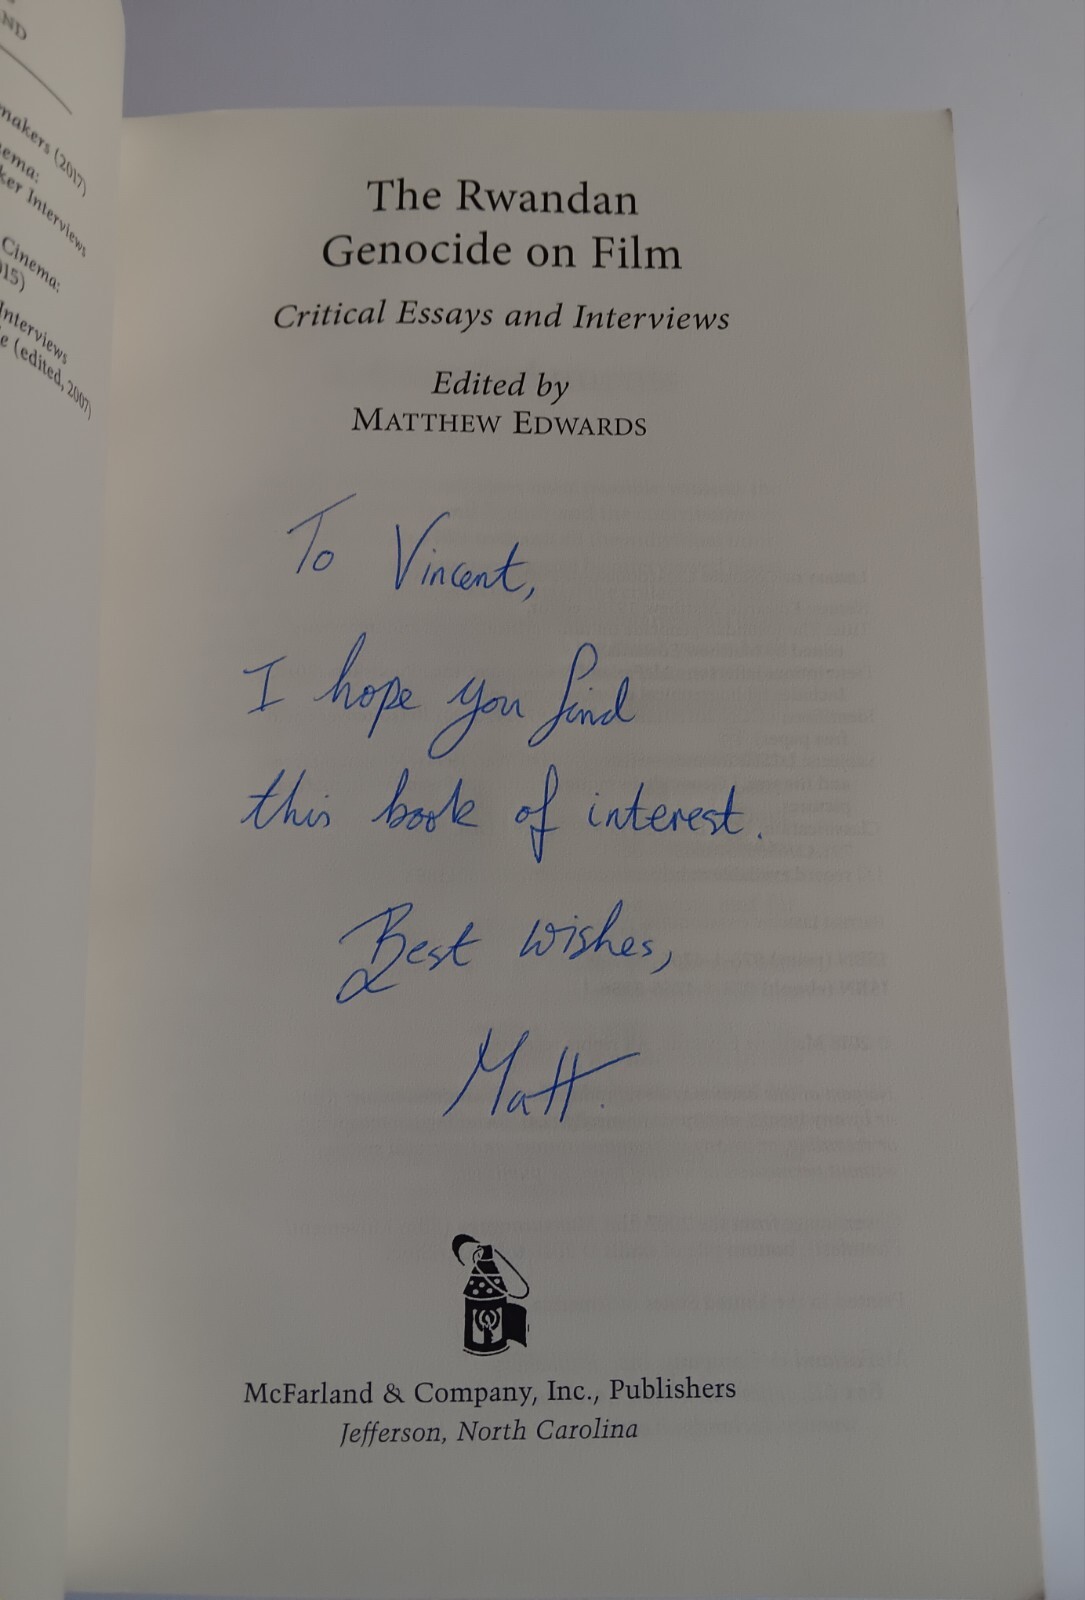 ND
makers (2017)
ema:
ker Interviews
Cinema:
15)
Interviews
e (edited, 2007)
The Rwandan
Genocide on Film
Critical Essays and Interviews
Edited by
MATTHEW EDWARDS
To Vincent,
I hope you find
this book of interest.
Best wishes,
Matt.
McFarland & Company, Inc., Publishers
Jefferson, North Carolina